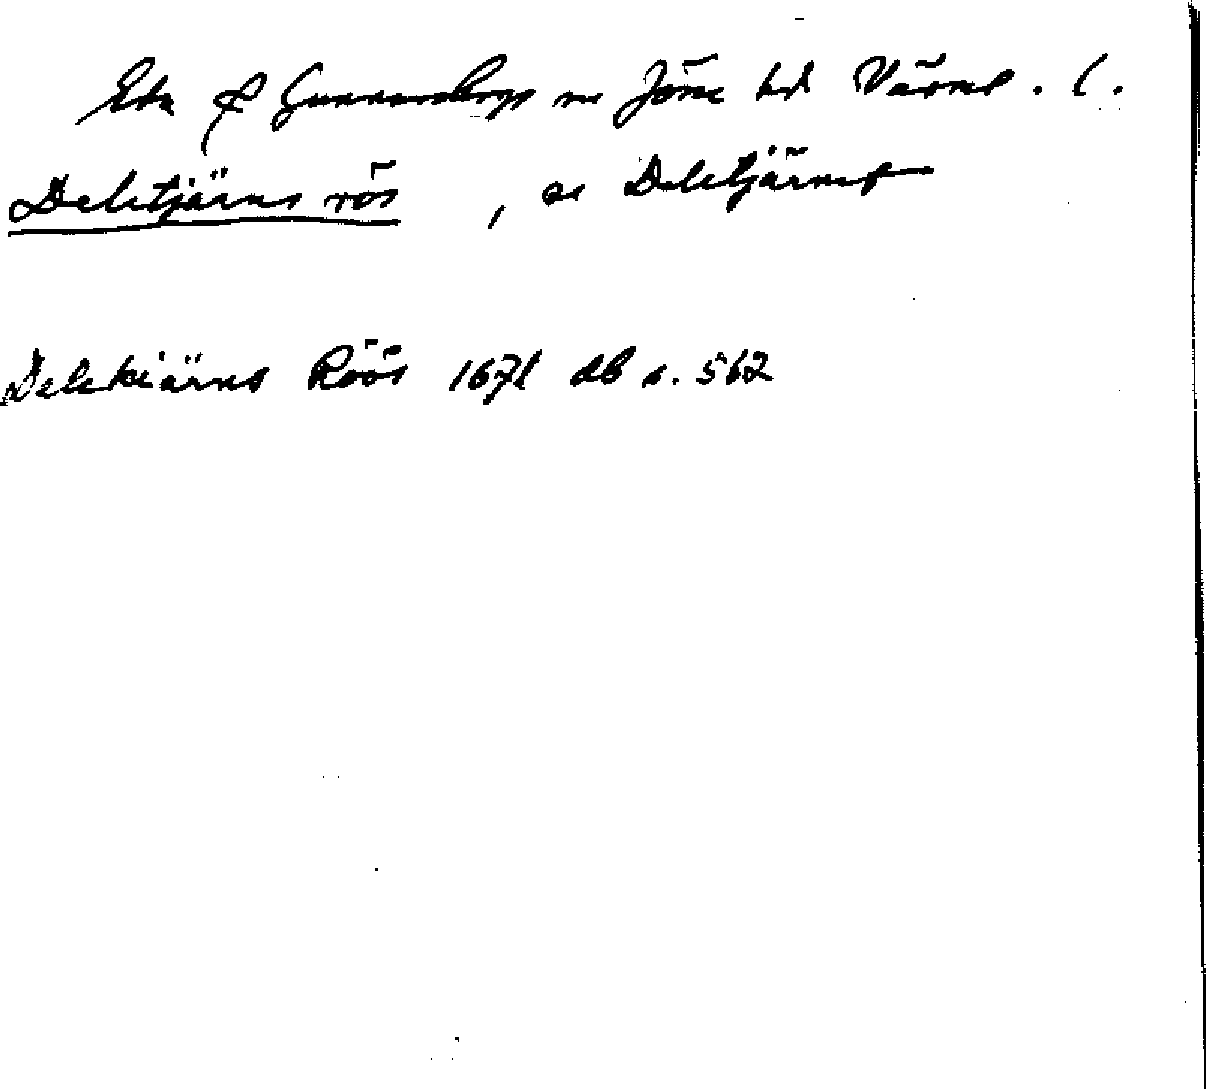 Eda f Gunnarskogs sn Jösse hd Värml. l.
Deletjärns rös, se Deletjärnet
Delekiärns Röös 1671 db s. 562